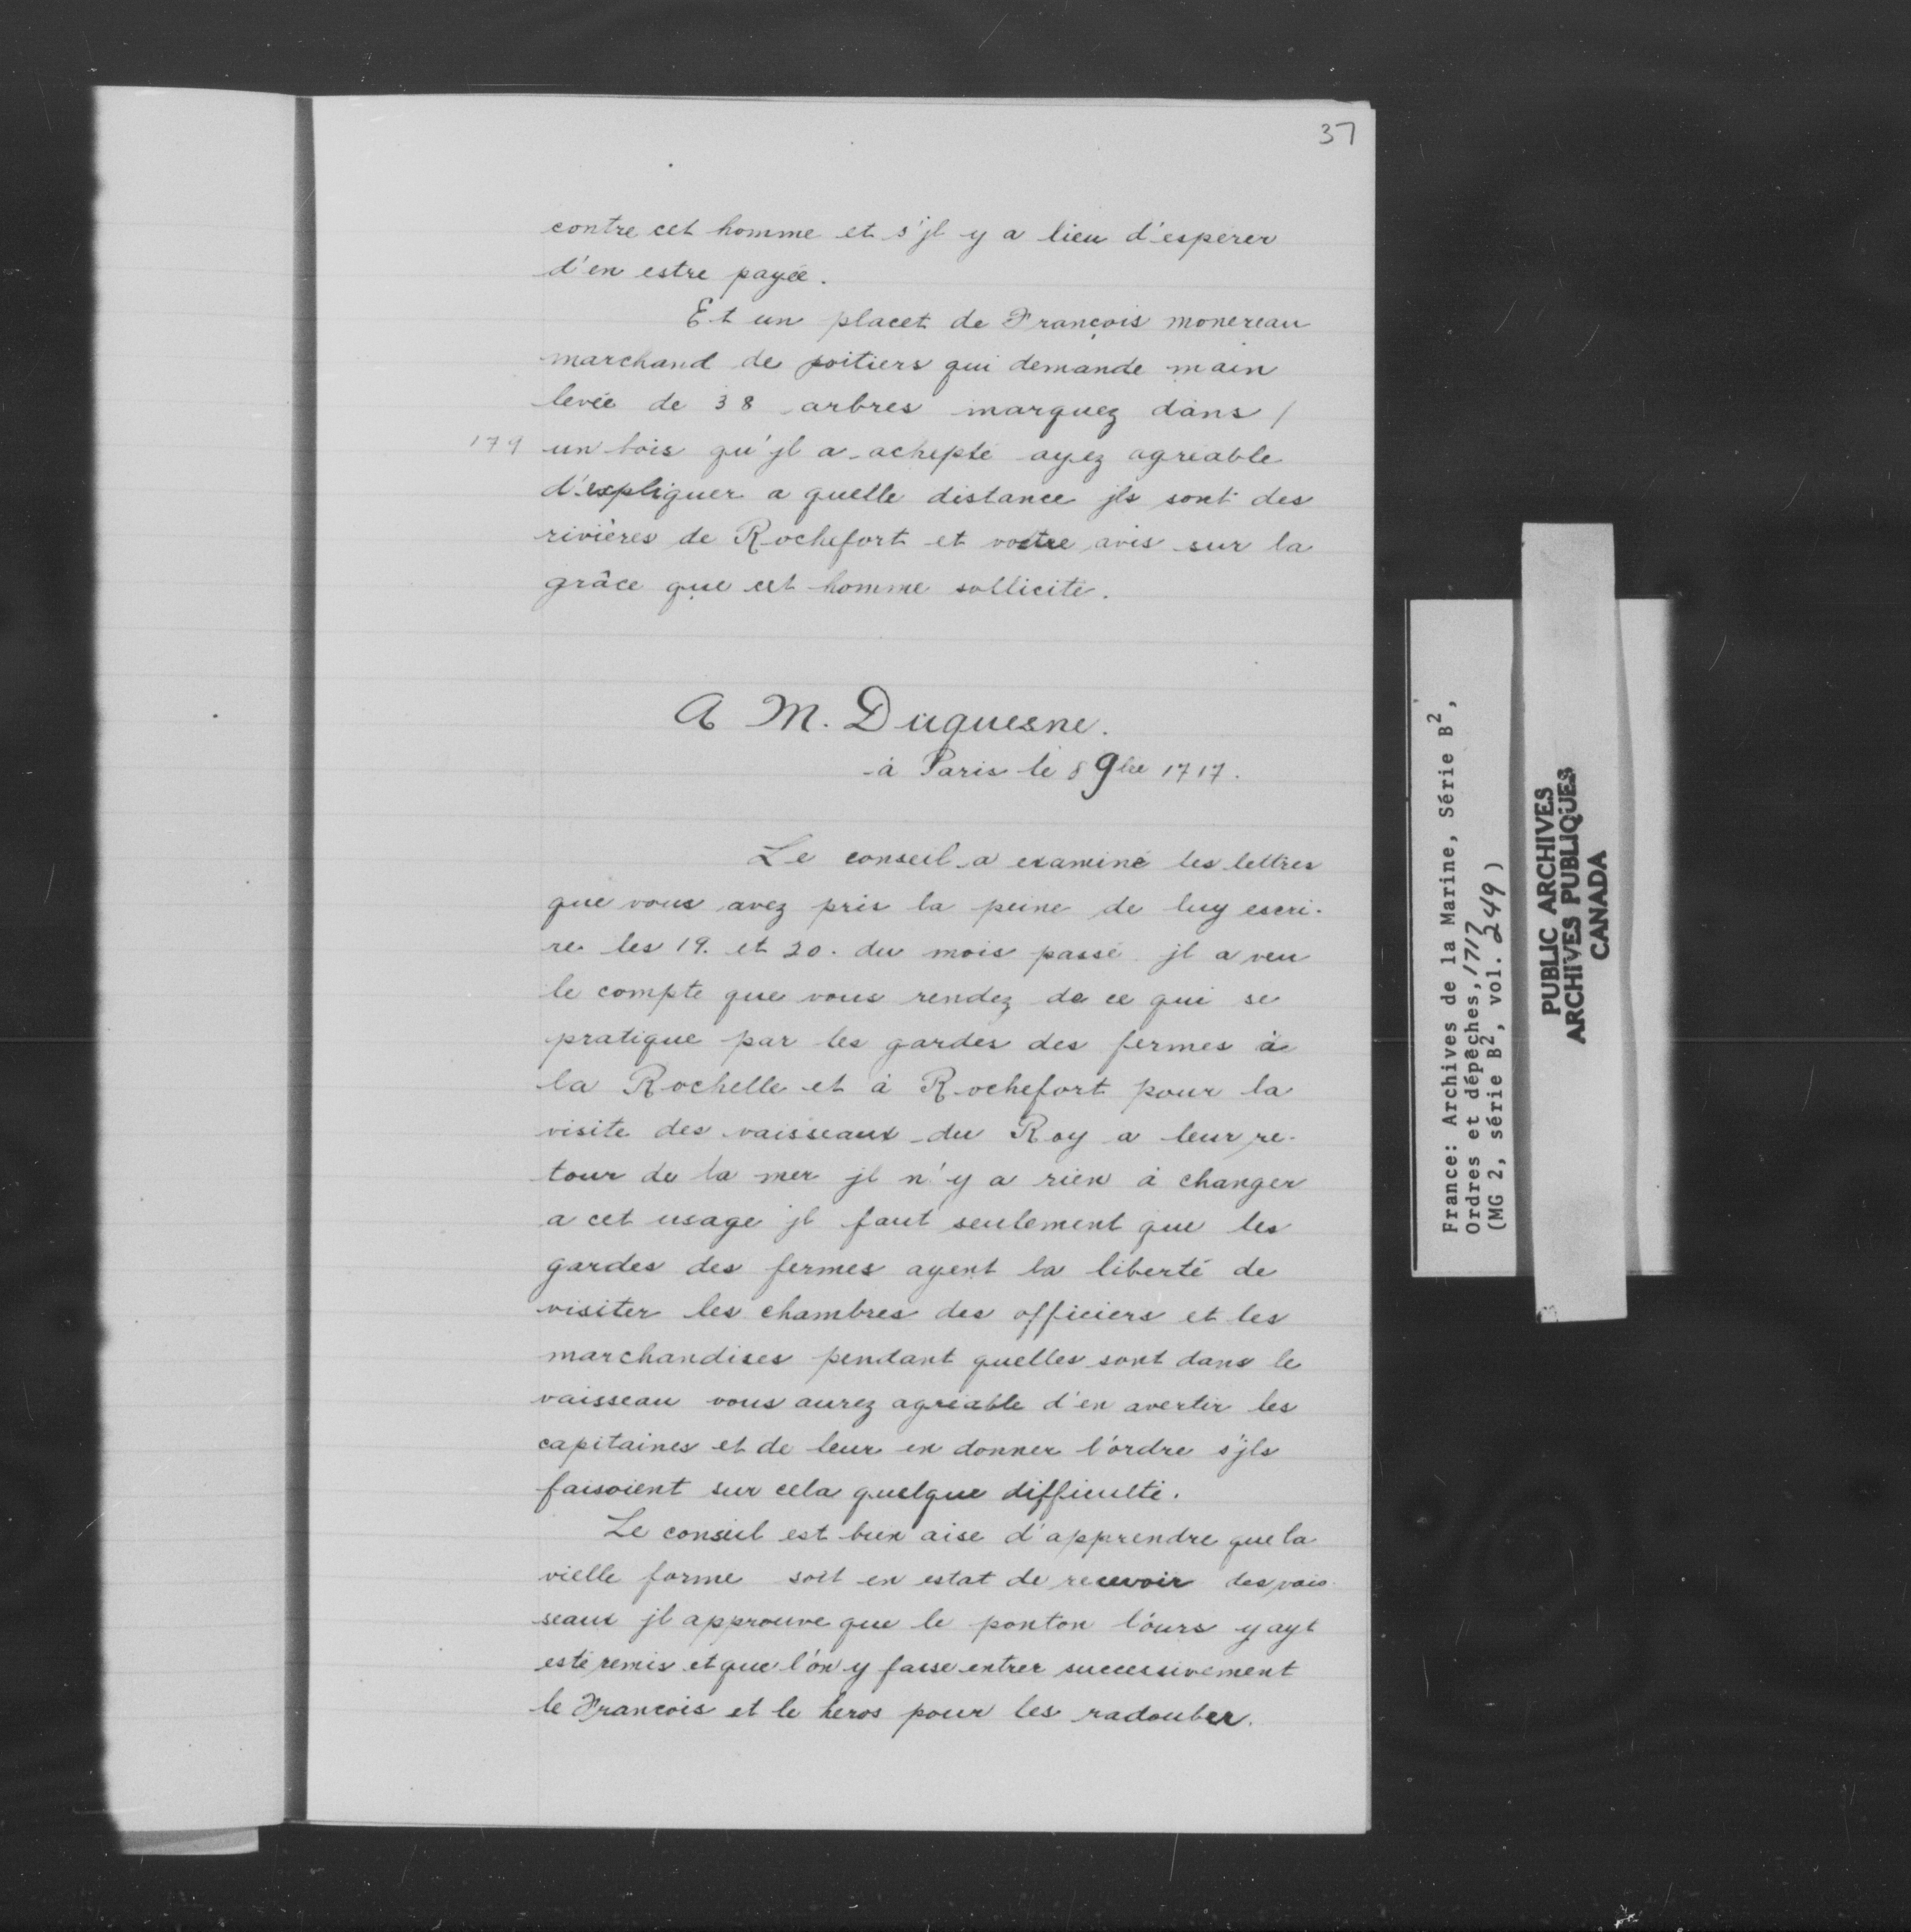 37
contre cet homme et s'jl y a lieu d'espérer
d'en estre payée.
Et un placet de François monereau
marchand de poitiers qui demande main
levée de 38 arbres marquez dans /
179 un bois qu'jl a achepté ayez agréable
d'expliquer a quelle distance jls sont des
rivières de Rochefort et vostre avis sur la
grâce que cet homme sollicite.
A M. Duquesne.
à Paris le 8 9bre 1717.
Le conseil a examiné les lettres
que vous avez pris la peine de luy escri-
re les 19. et 20. du mois passé jl a veu
le compte que vous rendez de ce qui se
pratique par les gardes des fermes à
la Rochelle et à Rochefort pour la
visite des vaisseaux du Roy a leur re-
tour de la mer jl n'y a rien à changer
a cet usage jl faut seulement que les
gardes des fermes ayent la liberté de
visiter les chambres des officiers et les
marchandises pendant quelles sont dans le
vaisseau vous aurez agréable d'en avertir les
capitaines et de leur en donner l'ordre s'jls
faisoient sur cela quelque difficulté.
Le conseil est bien aise d'apprendre que la
vielle forme soit en estat de recevoir des vais-
seaux jl approuve que le ponton l'ours y ayt
esté remis et que l'on y fasse entrer successivement
le Francois et le heros pour les radouber.
France: Archives de la Marine, Série B²,
Ordres et dépêches, 1717
(MG 2, série B², vol. 249)
PUBLIC ARCHIVES
ARCHIVES PUBLIQUES
CANADA